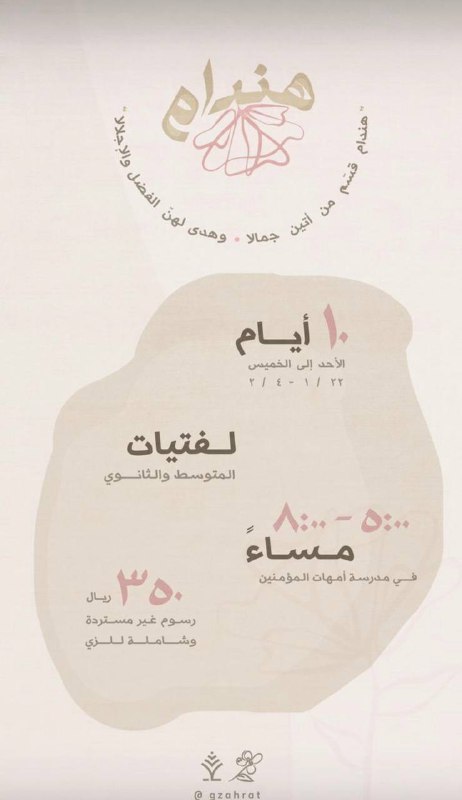 هندام
"هندام قسّم من أتين جمالا • وهدى لهنّ الفضل والإجلالا"
١٠ أيـــام
الأحد إلى الخميس
٢٢ / ١ - ٤ / ٢
لـفتيات
المتوسط والثانـــوي
٥:٠٠ - ٨:٠٠
مـسـاءً
فـي مدرسة أمهات المؤمنين
٣٥٠ ريال
رسوم غير مستردة
وشـامـلـة لـلـزي
@ gzahrat